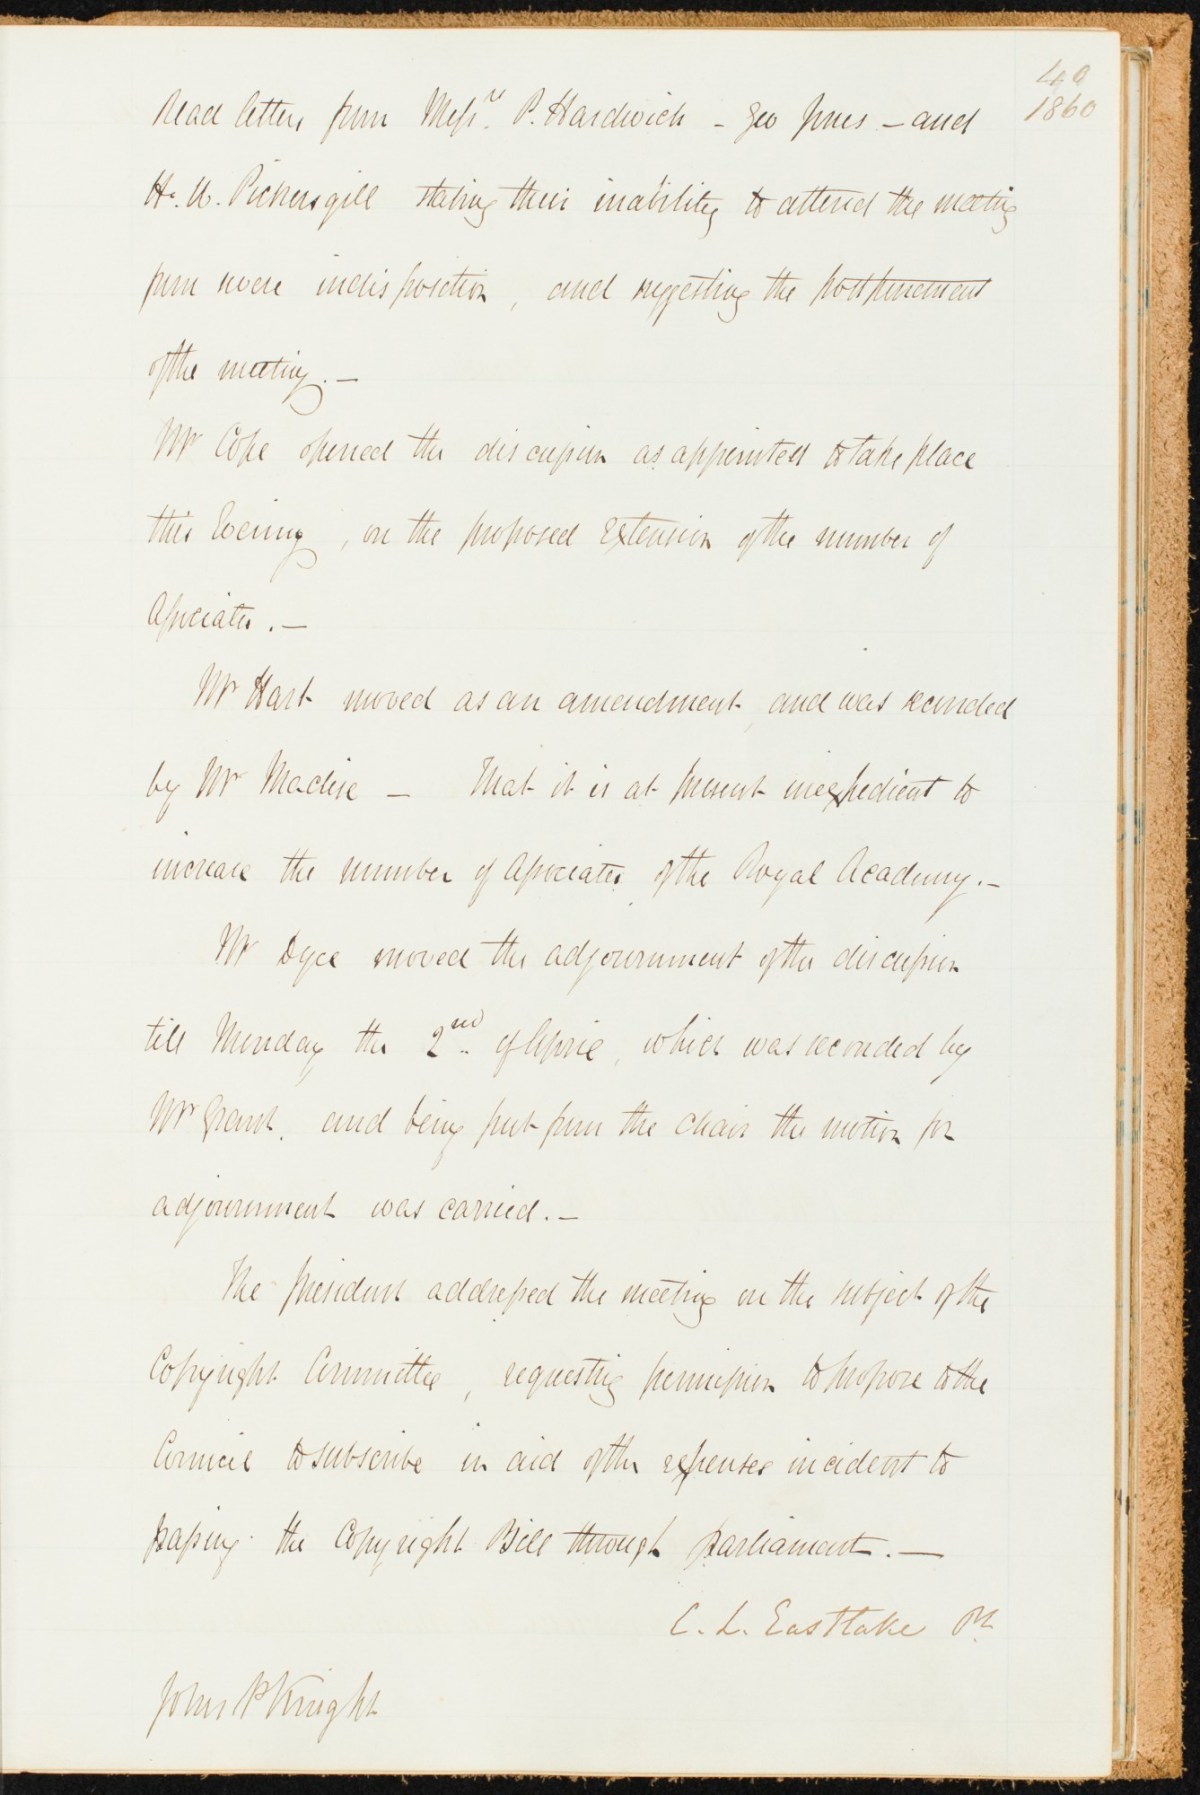 49
1860
Read letters from Messrs. P. Hardwick – Geo Jones – and
H. W. Pickersgill stating their inability to attend the meeting
from severe indisposition, and suggesting the postponement
of the meeting. –
Mr Cope opened the discussion as appointed to take place
this Evening, on the proposed extension of the number of
Associates. –
Mr Hart moved as an amendment, and was seconded
by Mr Maclise – That it is at present inexpedient to
increase the number of Associates of the Royal Academy. –
Mr Dyce moved the adjournment of the discussion
till Monday the 2nd of April, which was seconded by
Mr Grant. and being put from the chair the motion for
adjournment was carried. –
The President addressed the meeting on the subject of the
Copyright Committee, requesting permission to propose to the
Council to subscribe in aid of the expenses incident to
passing the Copyright Bill through parliament. –
C. L. Eastlake
John P Knight